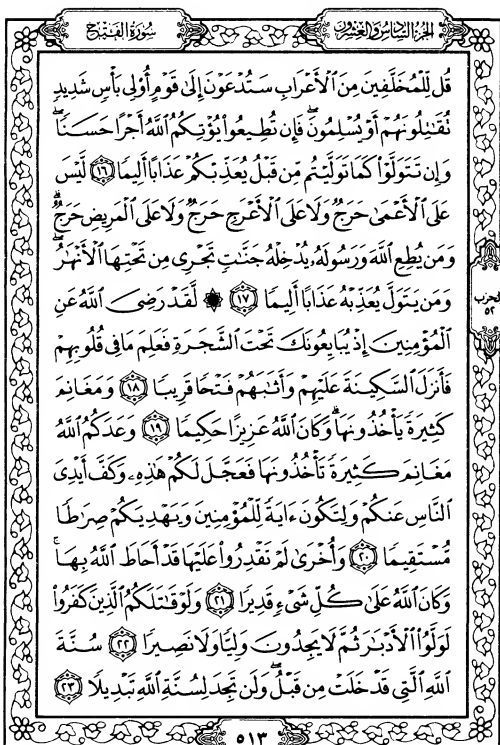 سُورَةُ الفَتْحِ
الجُزْءُ السَّادِسُ وَالعِشْرُونَ
قُل لِّلْمُخَلَّفِينَ مِنَ ٱلْأَعْرَابِ سَتُدْعَوْنَ إِلَىٰ قَوْمٍ أُو۟لِى بَأْسٍ شَدِيدٍ
تُقَٰتِلُونَهُمْ أَوْ يُسْلِمُونَ ۖ فَإِن تُطِيعُوا۟ يُؤْتِكُمُ ٱللَّهُ أَجْرًا حَسَنًا ۖ
وَإِن تَتَوَلَّوْا۟ كَمَا تَوَلَّيْتُم مِّن قَبْلُ يُعَذِّبْكُمْ عَذَابًا أَلِيمًا ١٦ لَّيْسَ
عَلَى ٱلْأَعْمَىٰ حَرَجٌ وَلَا عَلَى ٱلْأَعْرَجِ حَرَجٌ وَلَا عَلَى ٱلْمَرِيضِ حَرَجٌ ۗ
وَمَن يُطِعِ ٱللَّهَ وَرَسُولَهُۥ يُدْخِلْهُ جَنَّٰتٍ تَجْرِى مِن تَحْتِهَا ٱلْأَنْهَٰرُ ۖ
وَمَن يَتَوَلَّ يُعَذِّبْهُ عَذَابًا أَلِيمًا ١٧ ۞ لَّقَدْ رَضِىَ ٱللَّهُ عَنِ
ٱلْمُؤْمِنِينَ إِذْ يُبَايِعُونَكَ تَحْتَ ٱلشَّجَرَةِ فَعَلِمَ مَا فِى قُلُوبِهِمْ
فَأَنزَلَ ٱلسَّكِينَةَ عَلَيْهِمْ وَأَثَٰبَهُمْ فَتْحًا قَرِيبًا ١٨ وَمَغَانِمَ
كَثِيرَةً يَأْخُذُونَهَا ۗ وَكَانَ ٱللَّهُ عَزِيزًا حَكِيمًا ١٩ وَعَدَكُمُ ٱللَّهُ
مَغَانِمَ كَثِيرَةً تَأْخُذُونَهَا فَعَجَّلَ لَكُمْ هَٰذِهِۦ وَكَفَّ أَيْدِىَ
ٱلنَّاسِ عَنكُمْ وَلِتَكُونَ ءَايَةً لِّلْمُؤْمِنِينَ وَيَهْدِيَكُمْ صِرَٰطًا
مُّسْتَقِيمًا ٢٠ وَأُخْرَىٰ لَمْ تَقْدِرُوا۟ عَلَيْهَا قَدْ أَحَاطَ ٱللَّهُ بِهَا ۚ
وَكَانَ ٱللَّهُ عَلَىٰ كُلِّ شَىْءٍ قَدِيرًا ٢١ وَلَوْ قَٰتَلَكُمُ ٱلَّذِينَ كَفَرُوا۟
لَوَلَّوُا۟ ٱلْأَدْبَٰرَ ثُمَّ لَا يَجِدُونَ وَلِيًّا وَلَا نَصِيرًا ٢٢ سُنَّةَ
ٱللَّهِ ٱلَّتِى قَدْ خَلَتْ مِن قَبْلُ ۖ وَلَن تَجِدَ لِسُنَّةِ ٱللَّهِ تَبْدِيلًا ٢٣
الحزب
٥٢
٥١٣